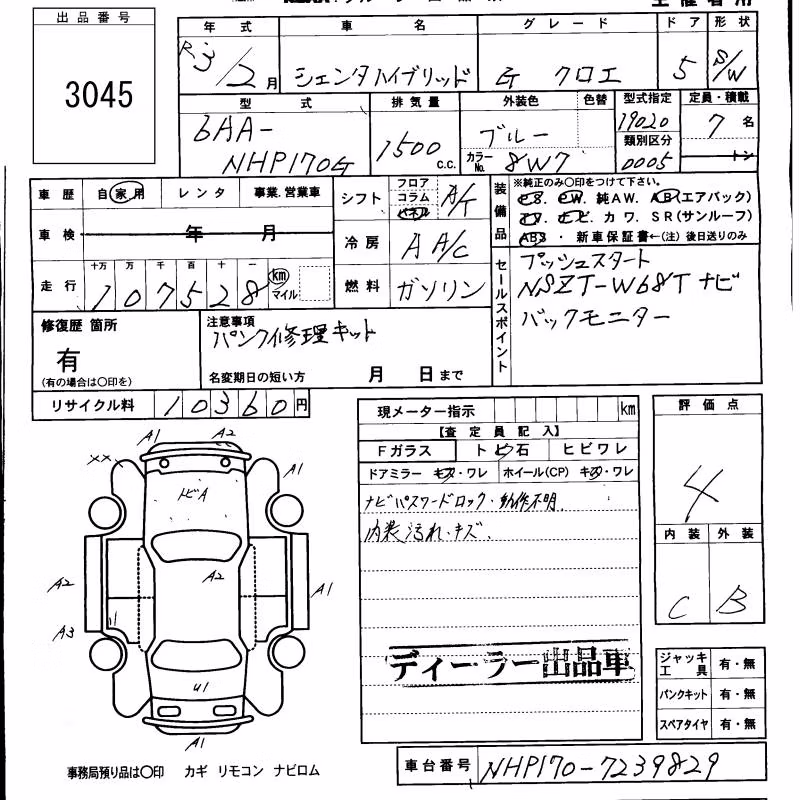 出品番号
3045
年式 車名 グレード ドア 形状
R-3/2月 シエンタハイブリッド G クロエ 5 S/W
型式 排気量 外装色 色替 型式指定 定員・積載
6AA-
NHP170G 1500 c.c. ブルー カラーNo. 8W7 19020 類別区分 0005 7名 トン
車歴 自家用 レンタ 事業.営業車
車検 年 月
走行 十万 万 千 百 十 一
107528 km マイル
シフト フロア コラム パネル A/T
冷房 A A/C
燃料 ガソリン
装備品
※純正のみ〇印をつけて下さい。
P.S. P.W. 純AW. AB(エアバック)
TV. ナビ. カワ. SR(サンルーフ)
ABS・新車保証書←(注)後日送りのみ
セールスポイント
プッシュスタート
NSZT-W68T ナビ
バックモニター
修復歴 箇所
有
(有の場合は〇印を)
注意事項
パンク修理キット
名変期日の短い方 月 日まで
リサイクル料 10360円
現メーター指示 km
【査定員記入】
Fガラス トビ石 ヒビワレ
ドアミラー キズ・ワレ ホイール(CP) キズ・ワレ
ナビパスワードロック・動作不明.
内装汚れ・キズ.
ディーラー出品車
評価点
4
内装 外装
C B
ジャッキ工具 有・無
パンクキット 有・無
スペアタイヤ 有・無
A1 A2
XX A1
トビA
A2 A2 A1
A3
U1
A1
事務局預り品は〇印 カギ リモコン ナビロム
車台番号 NHP170-7239829